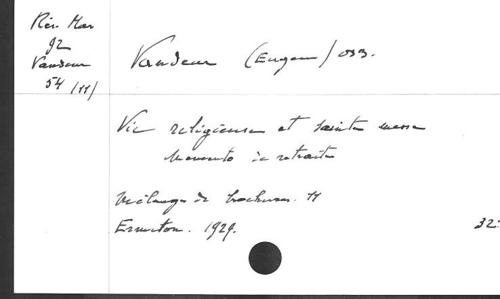 Rés. Mar
92
Vandeur
54 (11)
Vandeur (Eugène) OSB.
Vie religieuse et sainte messe
Memento de retraite
Mélanges de brochures. 11
Ermeton. 1929.
32: